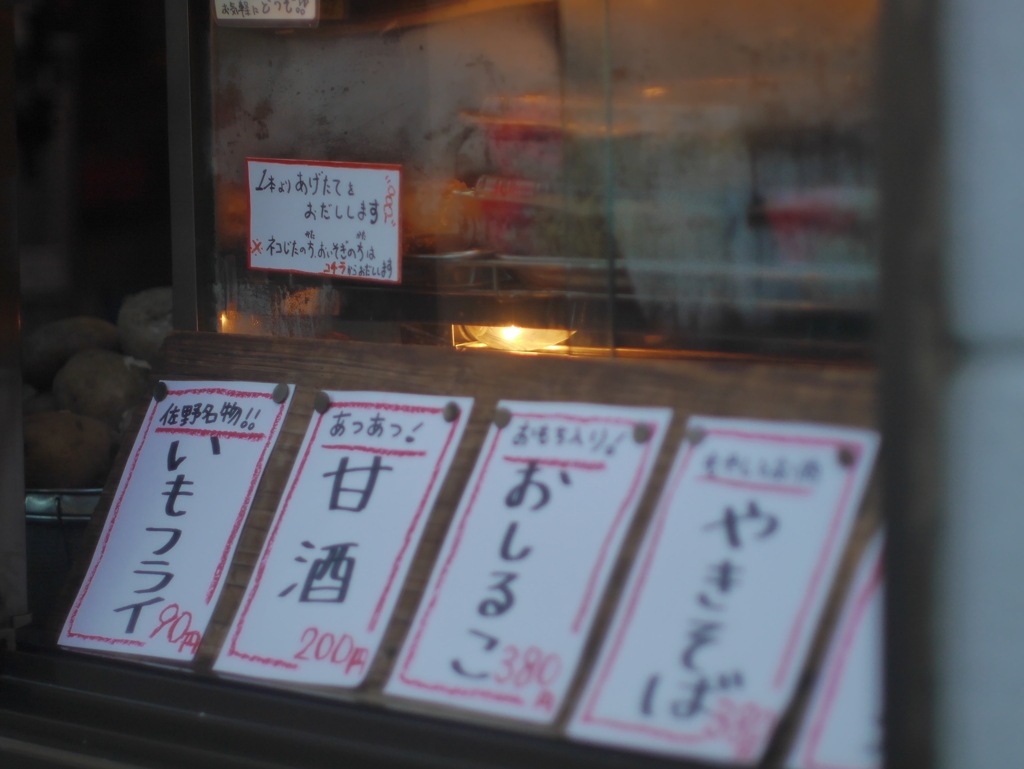 お気軽にどうぞ!!
1本よりあげたてを
おだしします
※ネコじたの方、おいそぎの方は
コチラからおだしします
佐野名物!!
いもフライ
90円
あつあつ!
甘酒
200円
おもち入り!
おしるこ
380円
やきそば